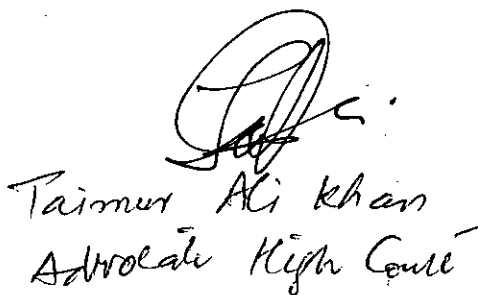 Taimur Ali Khan
Advocate High Court